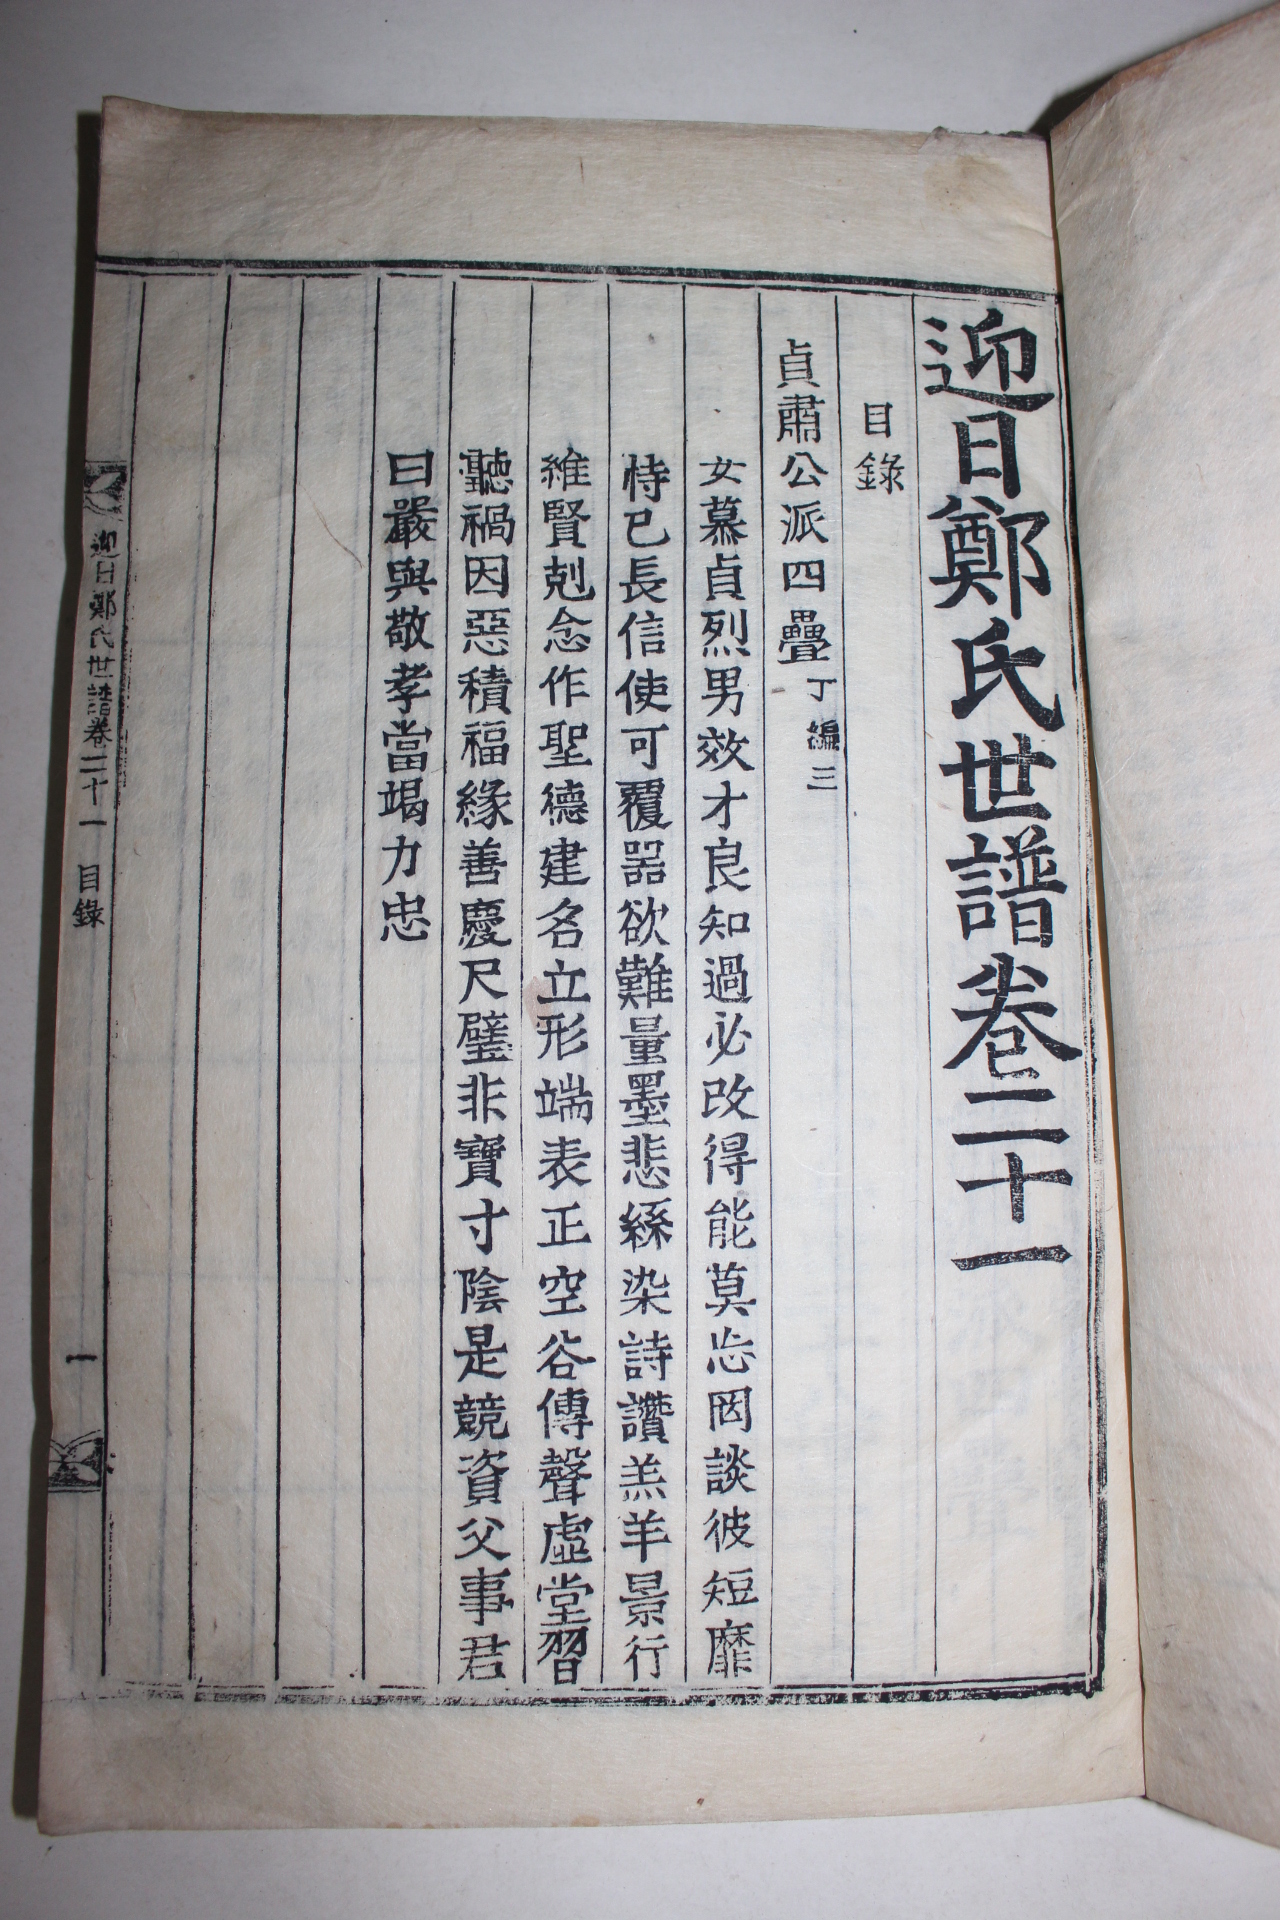 迎日鄭氏世譜卷二十一
目錄
貞肅公派四疊丁編三
女慕貞烈男效才良知過必改得能莫忘罔談彼短靡
恃已長信使可覆器欲難量墨悲絲染詩讚羔羊景行
維賢剋念作聖德建名立形端表正空谷傳聲虛堂習
聽禍因惡積福緣善慶尺璧非寶寸陰是競資父事君
曰嚴與敬孝當竭力忠
迎日鄭氏世譜卷二十一 目錄 一